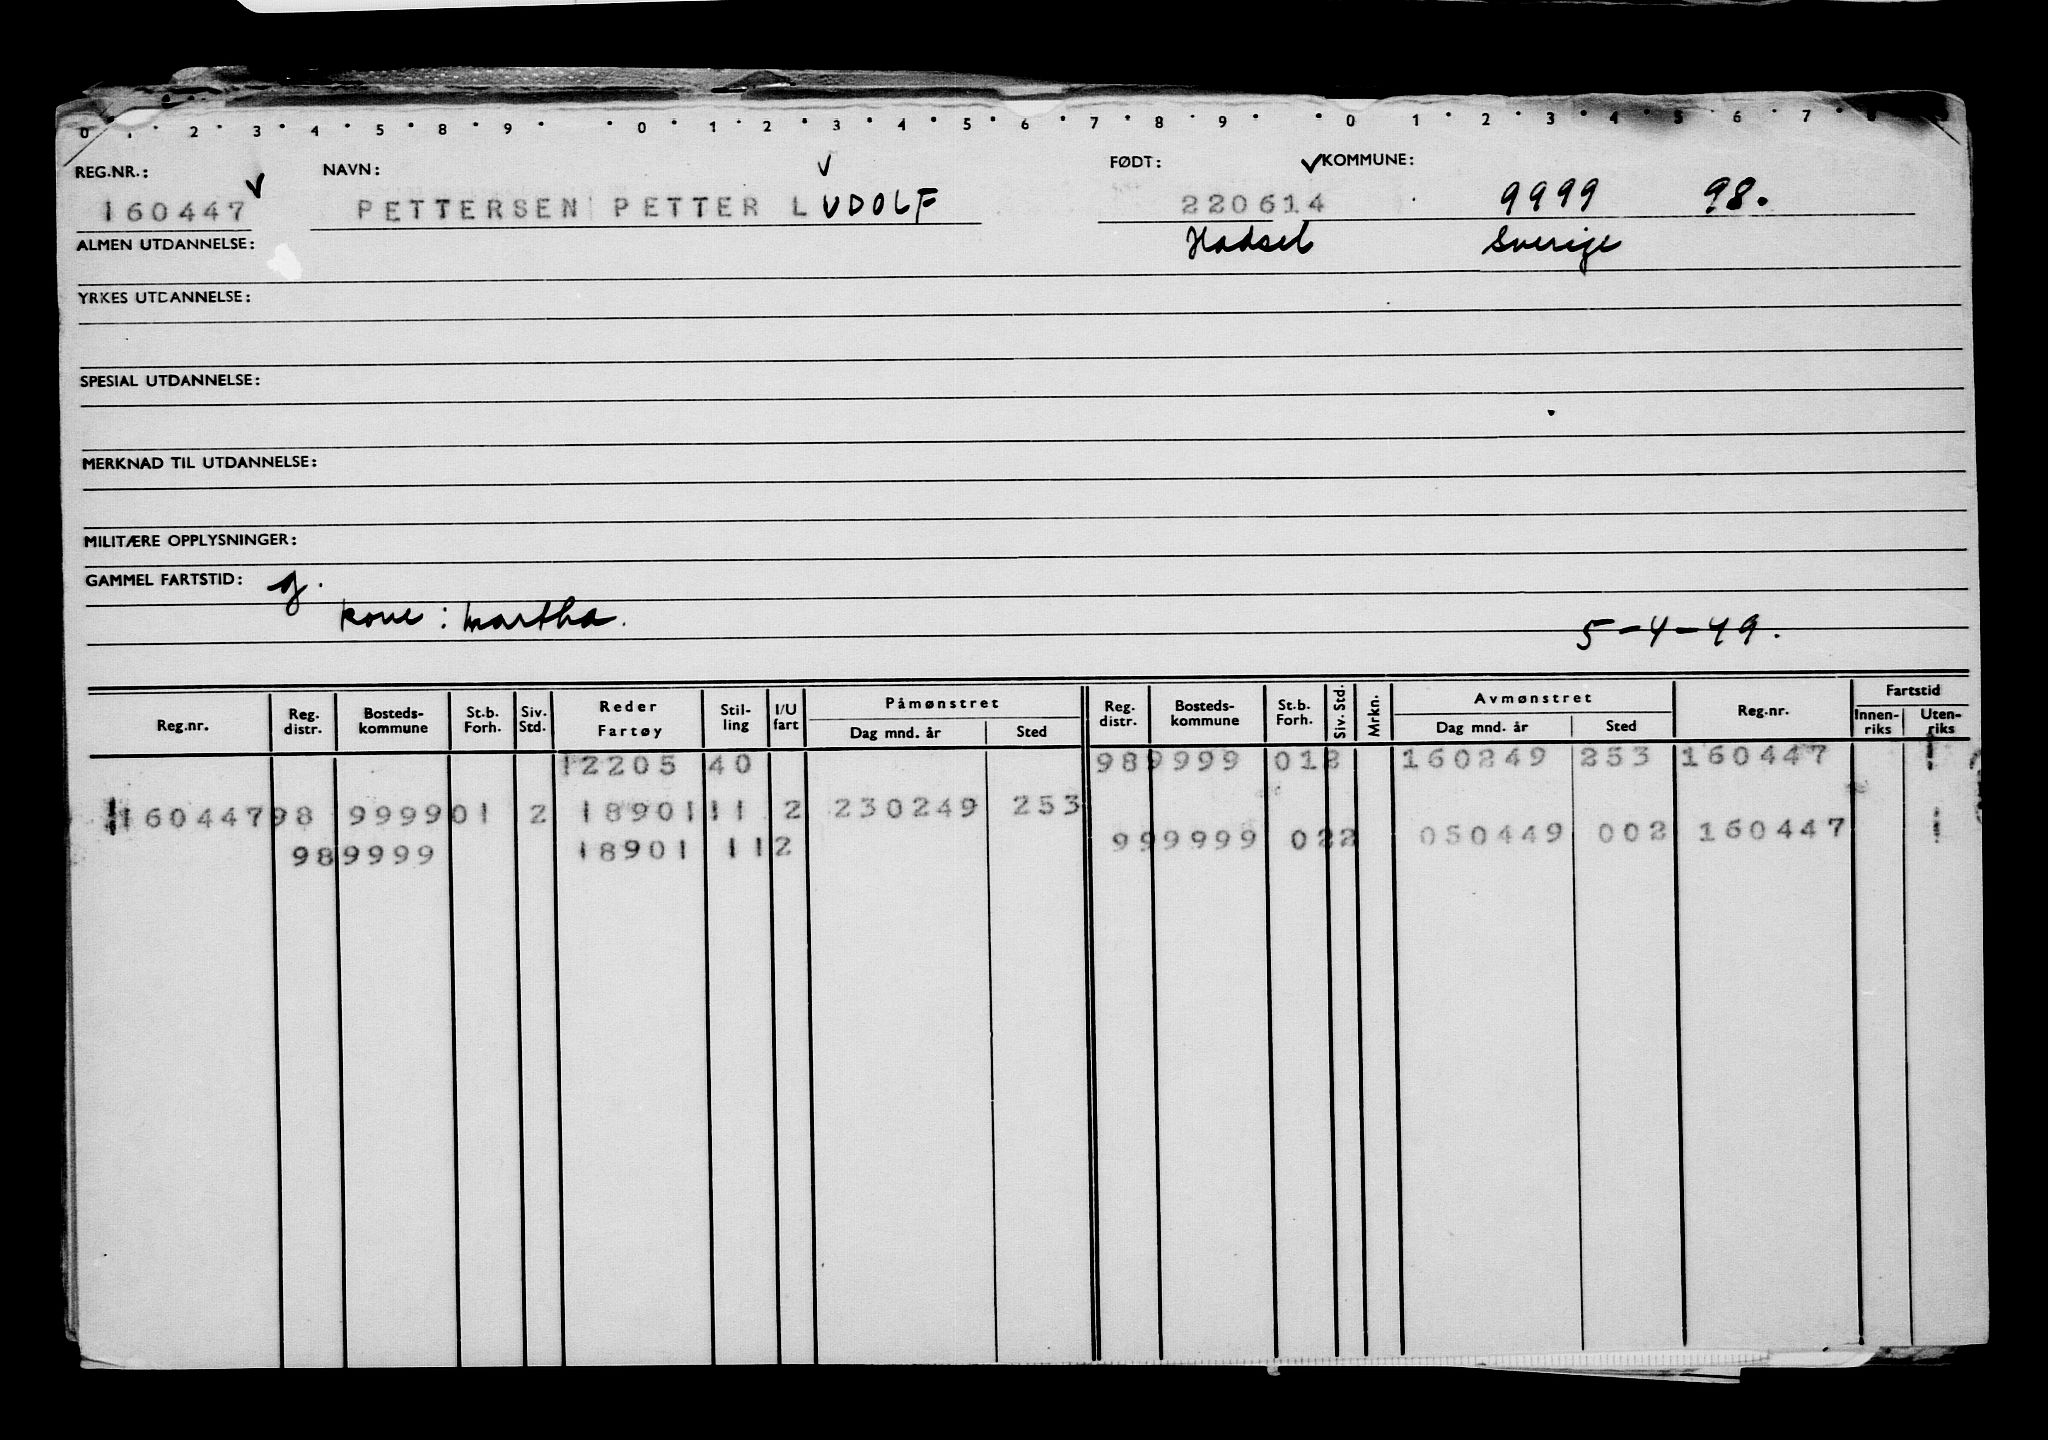 0 . 2 . 3 . 4 . 5 . 8 . 9 . . 0 . 1 . 2 . 3 . 4 . 5 . 6 . 7 . 8 . 9 . . 0 . 1 . 2 . 3 . 4 . 5 . 6 . 7 .
REG.NR.: NAVN: FØDT: KOMMUNE:
160447 PETTERSEN PETTER LUDOLF 220614 9999 98.
ALMEN UTDANNELSE: Hadsel Sverige
YRKES UTDANNELSE:
SPESIAL UTDANNELSE:
MERKNAD TIL UTDANNELSE:
MILITÆRE OPPLYSNINGER:
GAMMEL FARTSTID: g.
kone: Martha. 5-4-49.
Reg.nr. Reg. distr. Bosteds-kommune St.b. Forh. Siv. Std. Reder Fartøy Stil-ling I/U fart Påmønstret Dag mnd. år Sted Reg. distr. Bosteds-kommune St.b. Forh. Siv. Std. Mrkn. Avmønstret Dag mnd. år Sted Reg.nr. Fartstid Innen-riks Uten-riks
12205 40 989999 012 160249 253 160447 1
160447 98 9999 01 2 18901 11 2 230249 253
989999 18901 112 999999 022 050449 002 160447 1